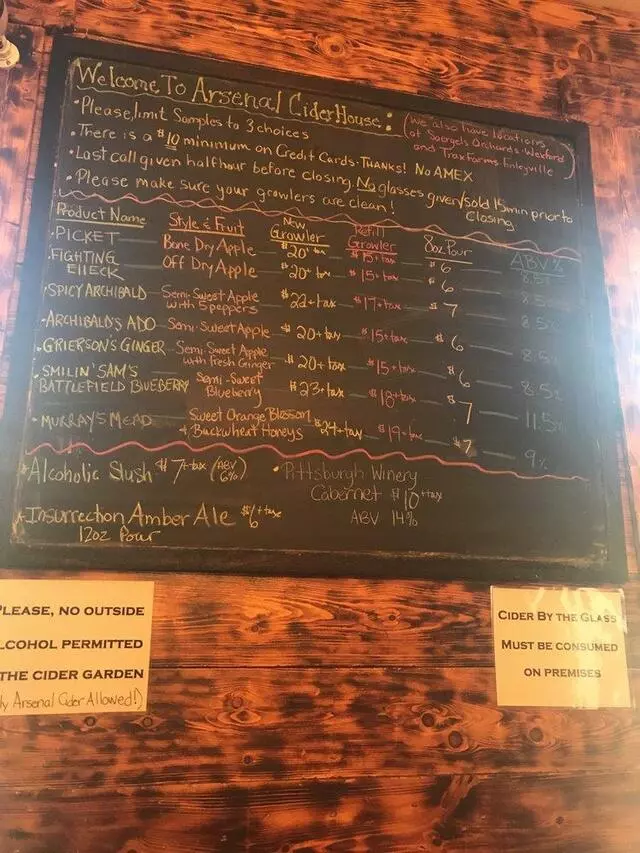 Welcome To Arsenal CiderHouse:
(We also have locations
at Soergels Orchards-Wexford
and Trax Farms Finleyville
• Please, limit Samples to 3 choices
• There is a $10 minimum on Credit Cards. THANKS! No AMEX
• Last call given half hour before closing. No glasses given/sold 15min prior to
closing
• Please make sure your growlers are clean!
Product Name Style & Fruit New Growler Refill Growler 8oz Pour ABV%
• PICKET Bone Dry Apple $20+tax $15+tax $6 8.5%
• FIGHTING
ELLECK Off Dry Apple $20+tax $15+tax $6 8.5%
• SPICY ARCHIBALD Semi-Sweet Apple
with 5 peppers $22+tax $17+tax $7 8.5%
• ARCHIBALD'S ADO Semi-Sweet Apple $20+tax $15+tax $6 8.5%
• GRIERSON'S GINGER Semi-Sweet Apple
with Fresh Ginger $20+tax $15+tax $6 8.5%
• SMILIN' SAM'S
BATTLEFIELD BLUEBERRY Semi-Sweet
Blueberry $23+tax $18+tax $7 11.5%
• MURRAY'S MEAD Sweet Orange Blossom
+ Buckwheat Honeys $24+tax $19+tax $7 9%
• Alcoholic Slush $7+tax (ABV
6%)
• Pittsburgh Winery
Cabernet $10+tax
ABV 14%
* Insurrection Amber Ale $6+tax
12oz Pour
PLEASE, NO OUTSIDE
ALCOHOL PERMITTED
THE CIDER GARDEN
ly Arsenal Cider Allowed!)
CIDER BY THE GLASS
MUST BE CONSUMED
ON PREMISES